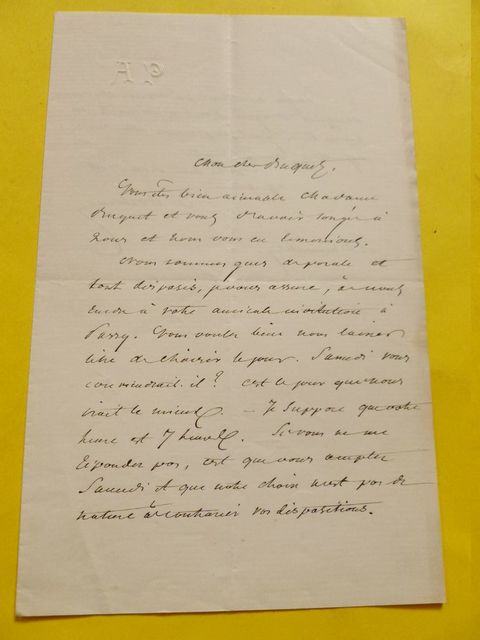 Mon cher Duquet,
Vous êtes bien aimable Madame
Duquet et vous d'avoir songé à
nous et nous vous en remercions.
Nous sommes gens de parole et
tout disposés, je vous assure, à nous
rendre à votre amicale invitation à
Passy. Vous voulez bien nous laisser
libre de choisir le jour. Samedi vous
conviendrait-il? C'est le jour que nous
irait le mieux. — Je suppose que votre
heure est 7 heures. Si vous ne me
répondez pas, c'est que vous acceptez
Samedi et que notre choix n'est pas de
nature à contrarier vos dispositions.